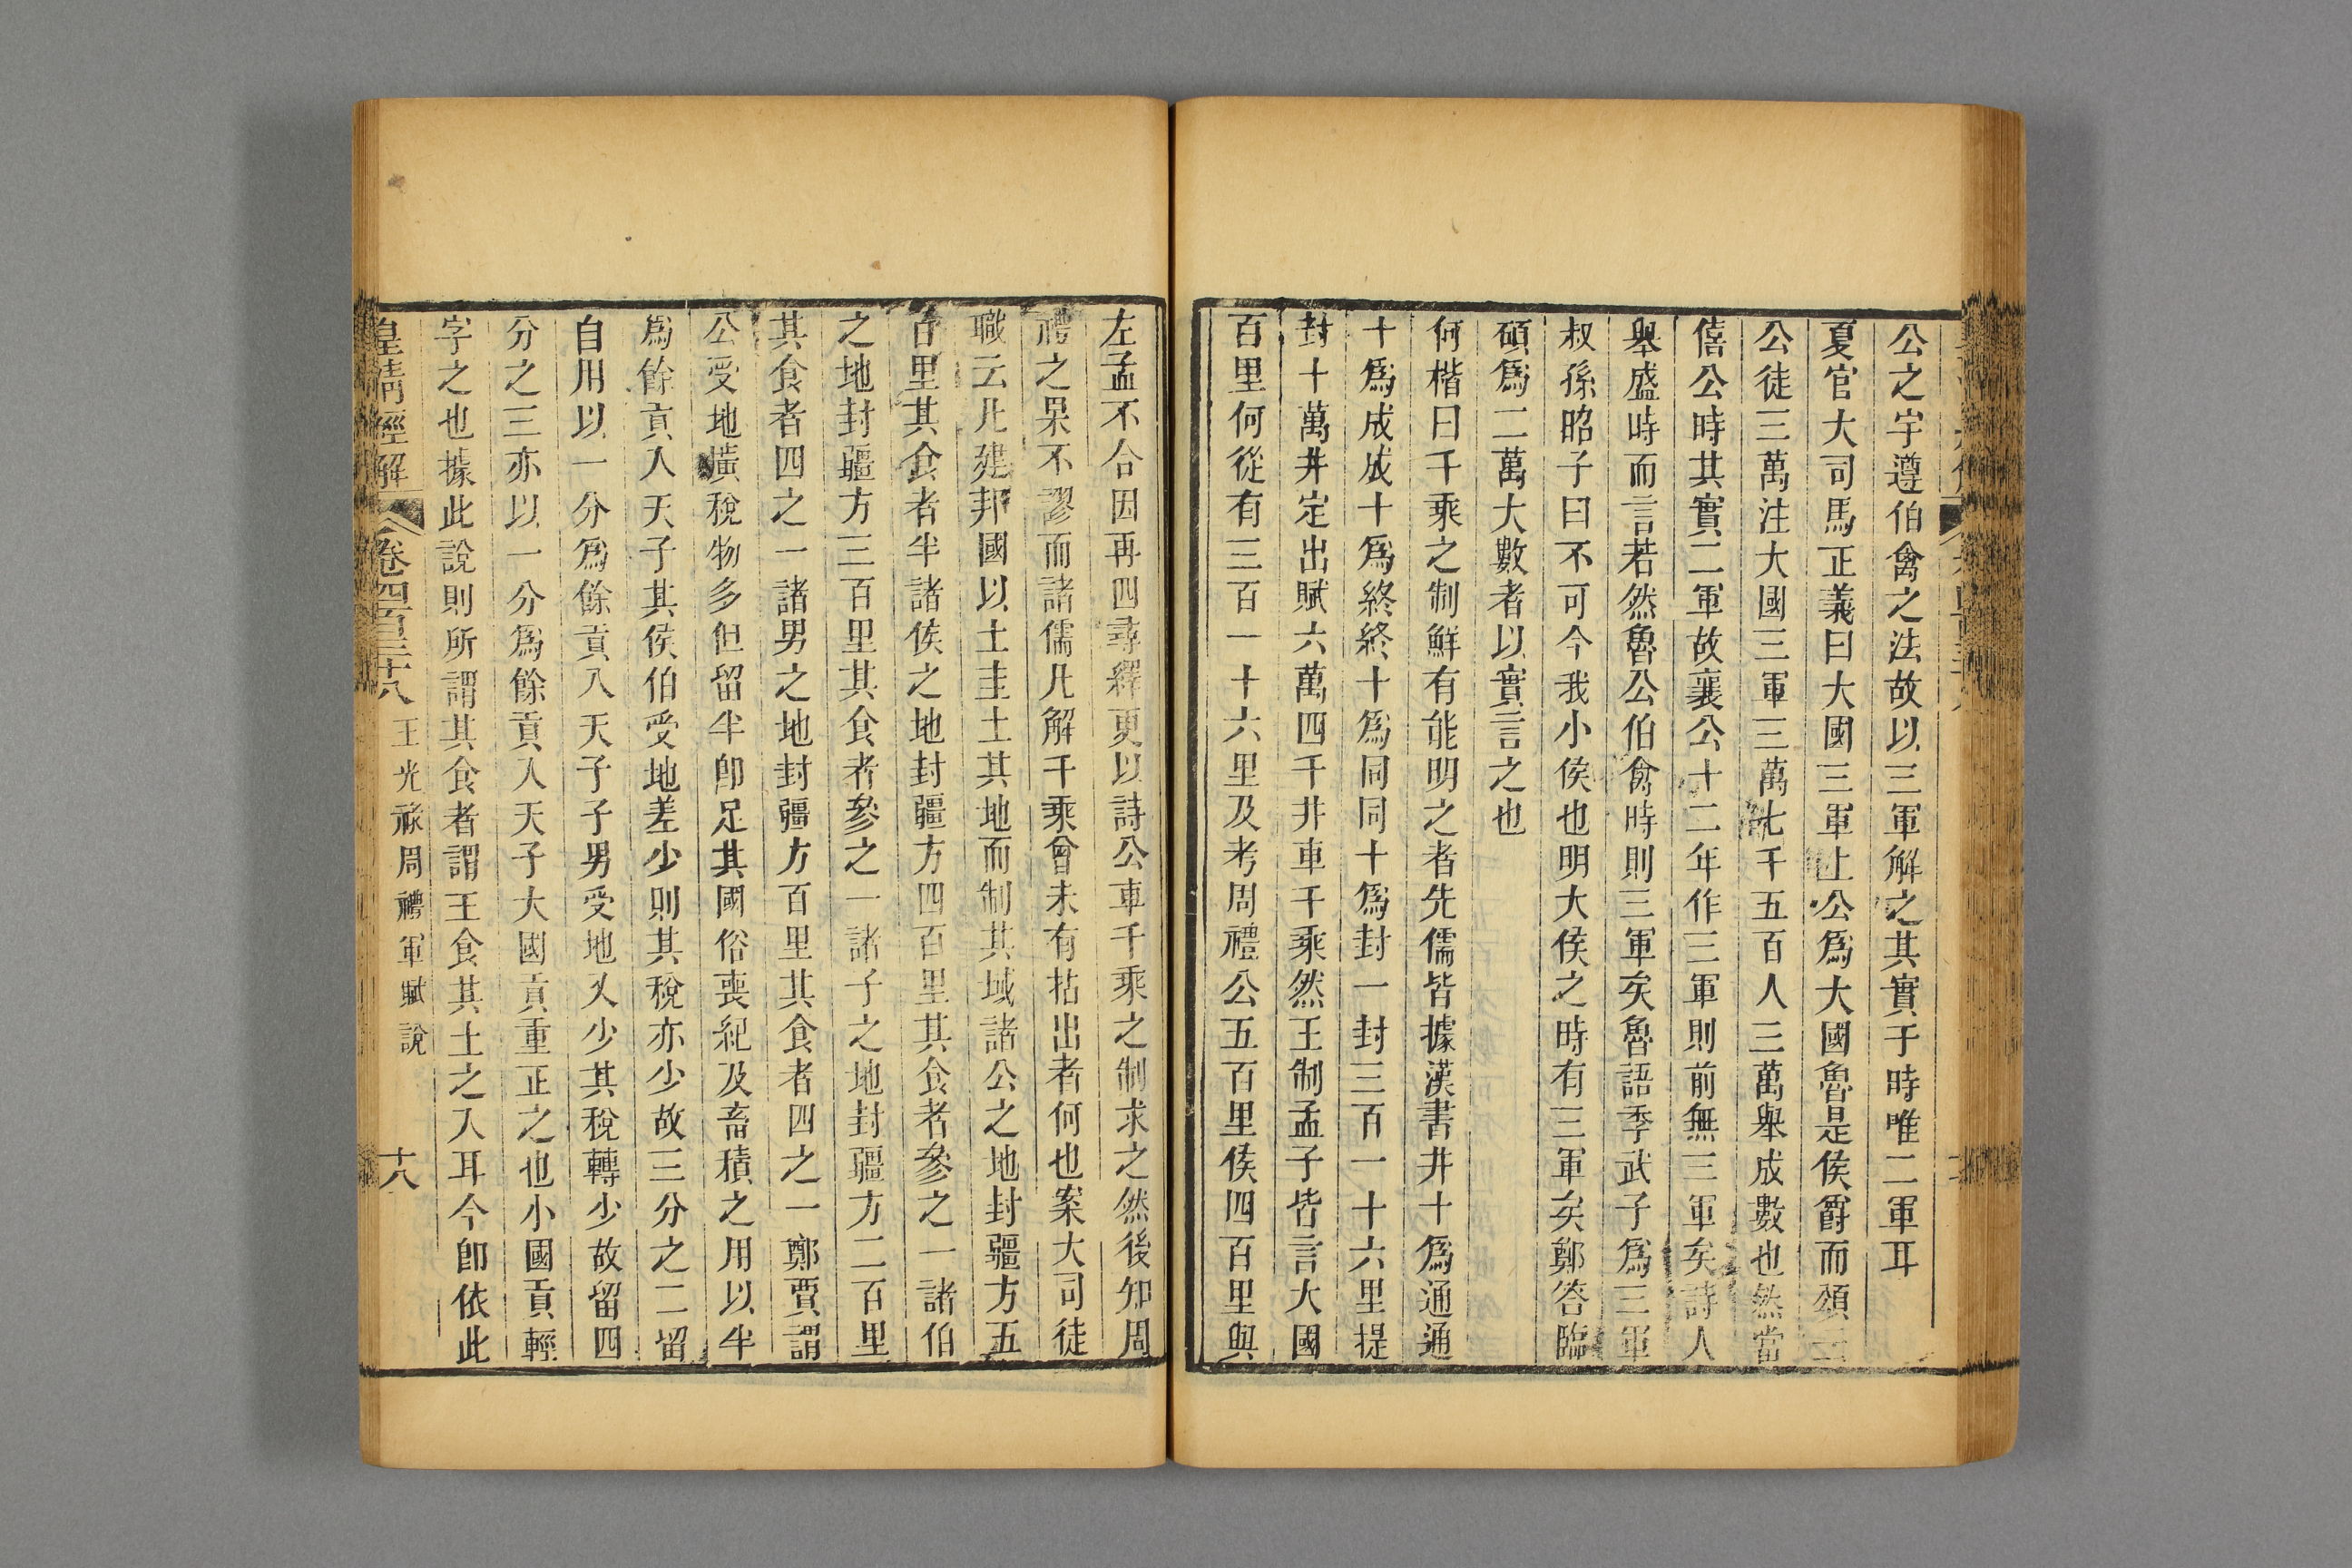 公之宇遵伯禽之法故以三軍解之其實于時唯二軍耳
夏官大司馬正義曰大國三軍上公爲大國魯是侯爵而頌云
公徒三萬注大國三軍三萬七千五百人三萬舉成數也然當
僖公時其實二軍故襄公十二年作三軍則前無三軍矣詩人
舉盛時而言若然魯公伯禽時則三軍矣魯語季武子爲三軍
叔孫昭子曰不可今我小侯也明大侯之時有三軍矣鄭答臨
碩爲二萬大數者以實言之也
何楷曰千乘之制鮮有能明之者先儒皆據漢書井十爲通通
十爲成成十爲終終十爲同同十爲封一封三百一十六里提
封十萬井定出賦六萬四千井車千乘然王制孟子皆言大國
百里何從有三百一十六里及考周禮公五百里侯四百里與
左孟不合因再四尋繹更以詩公車千乘之制求之然後知周
禮之果不謬而諸儒凡解千乘曾未有拈出者何也案大司徒
職云凡建邦國以土圭土其地而制其域諸公之地封疆方五
百里其食者半諸侯之地封疆方四百里其食者參之一諸伯
之地封疆方三百里其食者參之一諸子之地封疆方二百里
其食者四之一諸男之地封疆方百里其食者四之一鄭賈謂
公受地廣稅物多但留半卽足其國俗喪紀及畜積之用以半
爲餘貢入天子其侯伯受地差少則其稅亦少故三分之二留
自用以一分爲餘貢入天子子男受地又少其稅轉少故留四
分之三亦以一分爲餘貢入天子大國貢重正之也小國貢輕
字之也據此說則所謂其食者謂王食其土之入耳今卽依此
皇清經解 卷四百三十八 王光祿周禮軍賦說 十八